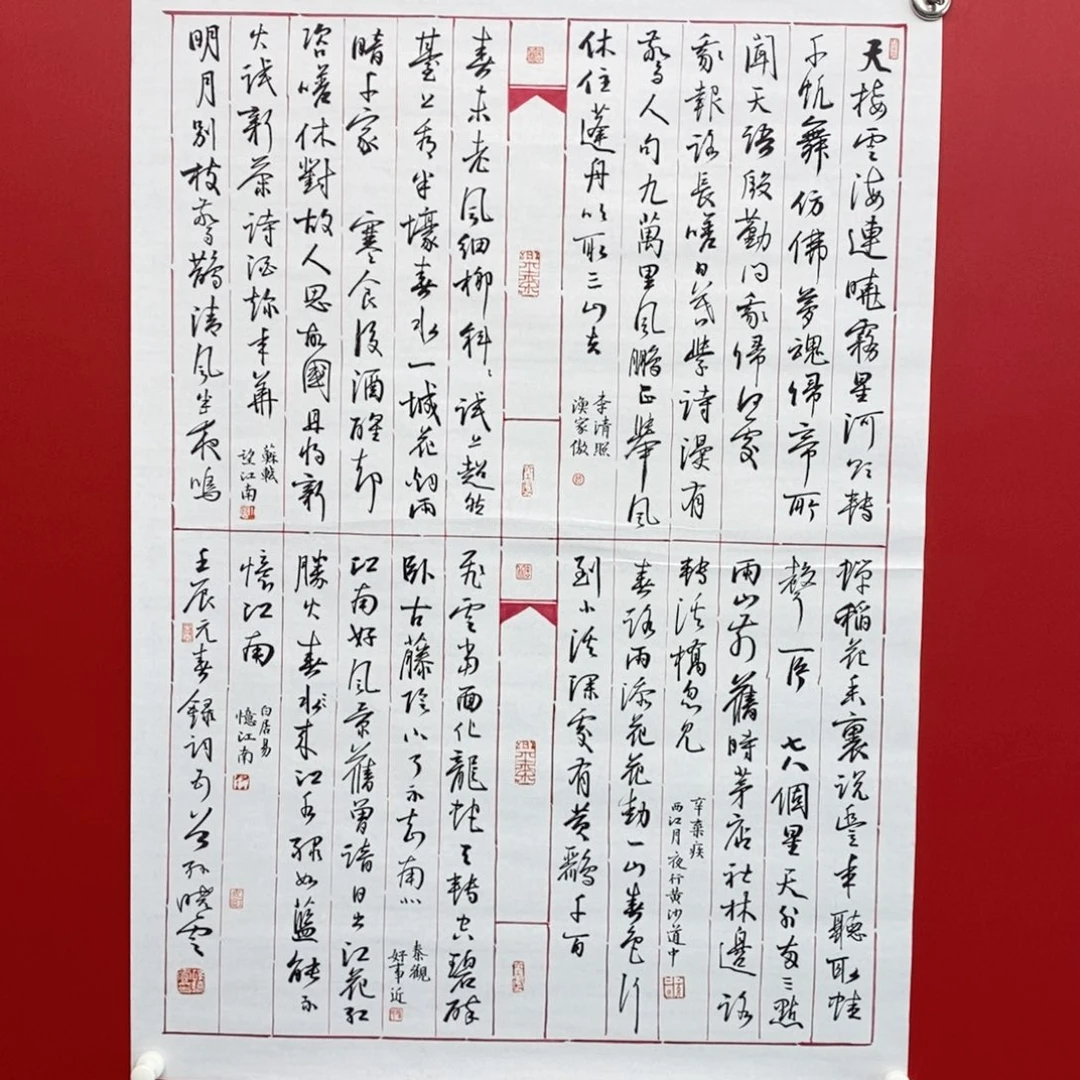 天接雲濤連曉霧星河欲轉
千帆舞仿佛夢魂歸帝所
聞天語殷勤問我歸何處
我報路長嗟日暮學詩漫有
驚人句九萬里風鵬正舉風
休住蓬舟吹取三山去
李清照
漁家傲
春未老風細柳斜〻試上超然
臺上看半壕春水一城花煙雨
暗千家 寒食後酒醒卻
咨嗟休對故人思故國且將新
火試新茶詩酒趁年華
蘇軾
望江南
明月別枝驚鵲清風半夜鳴
蟬稻花香裏說豐年聽取蛙
聲一片 七八個星天外兩三點
雨山前舊時茅店社林邊路
轉溪橋忽見
辛棄疾
西江月 夜行黃沙道中
春路雨添花花動一山春色行
到小溪深處有黃鸝千百
飛雲當面化龍蛇夭轉空碧醉
臥古藤陰下了不知南北
秦觀
好事近
江南好風景舊曾諳日出江花紅
勝火春水來江水綠如藍能不
憶江南
白居易
憶江南
壬辰元春錄詞五首孫曉雲